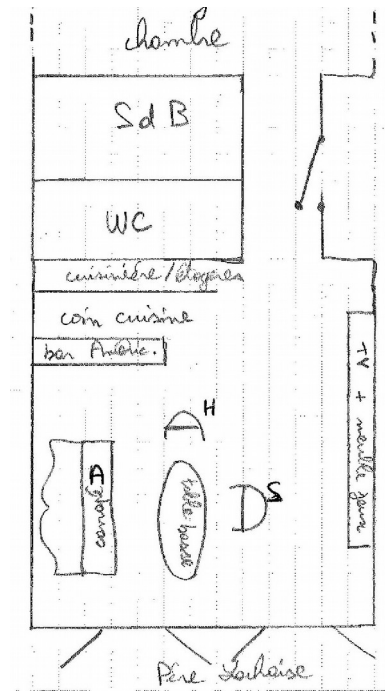 chambre
SdB
WC
cuisinière/étagères
coin cuisine
bar Améric.
H
TV + meuble
A
canapé
table basse
S
Père Lachaise